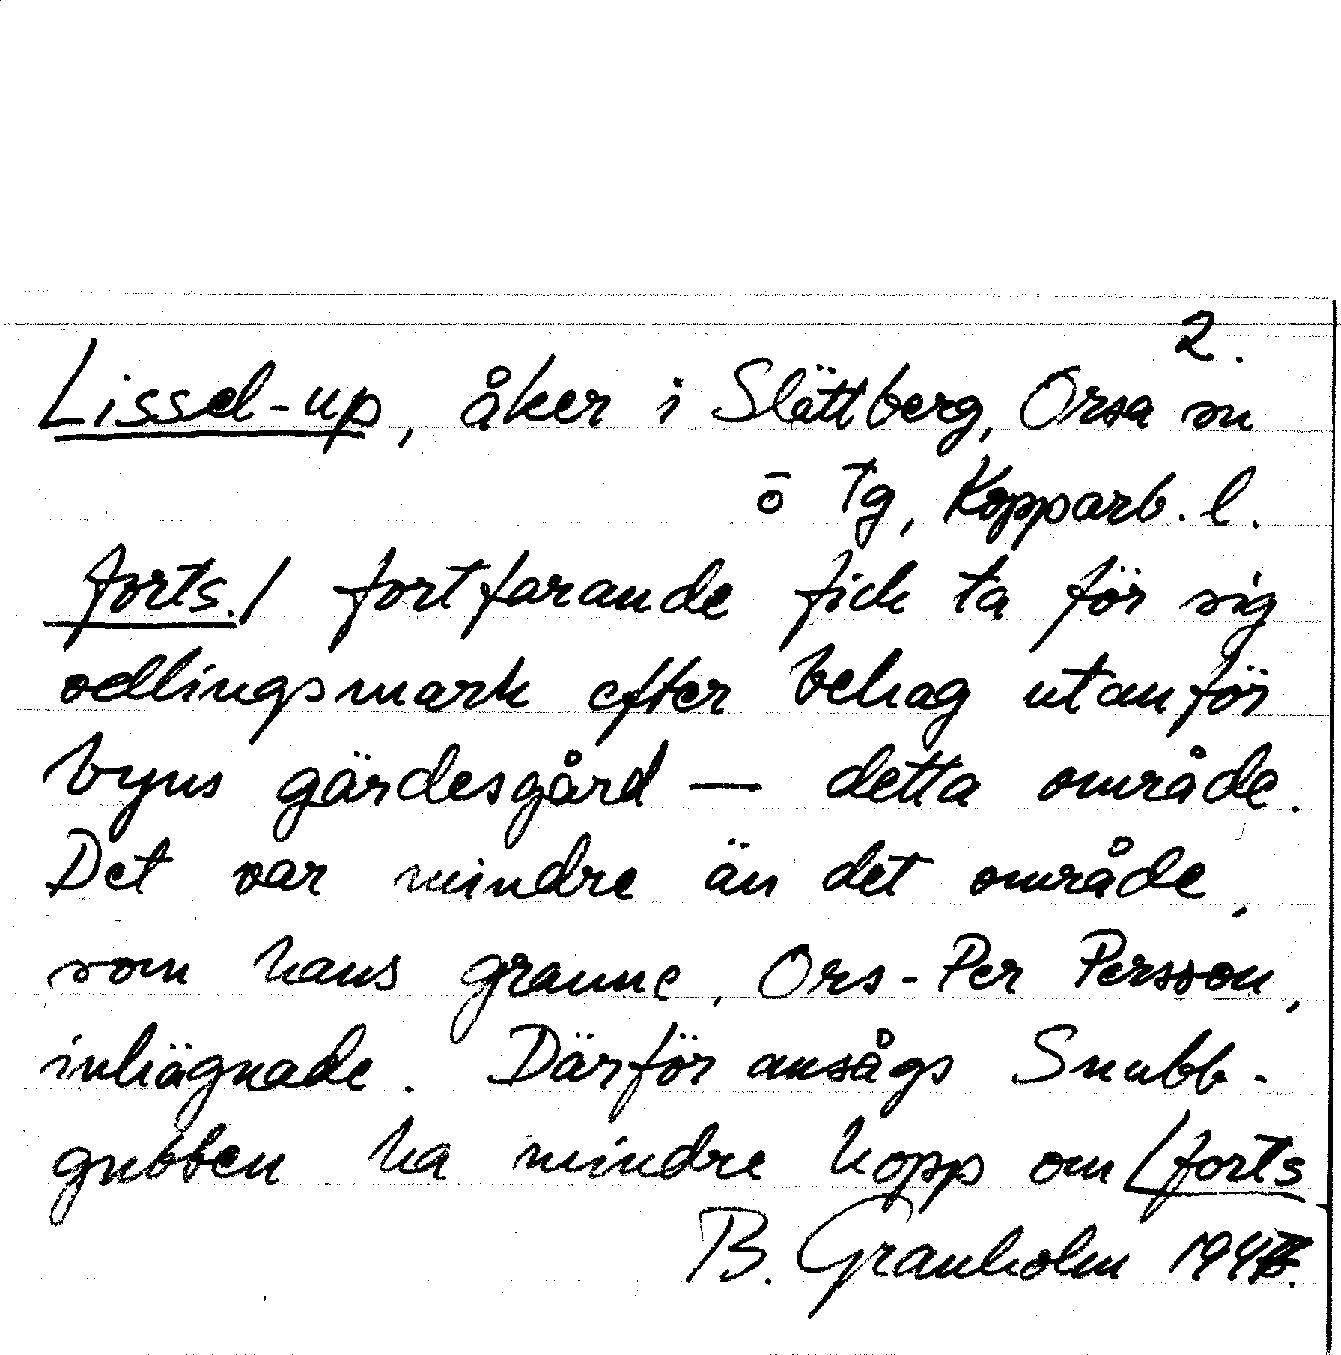 2.
Lissel-up, åker i Slättberg, Orsa sn
ö Tg, Kopparb. l.
forts./ fortfarande fick ta för sig
odlingsmark efter behag utanför
byns gärdesgård — detta område.
Det var mindre än det område,
som hans granne, Ors-Per Persson,
inhägnade. Därför ansågs Snubb-
gubben ha mindre hopp om /forts.
B. Granholm